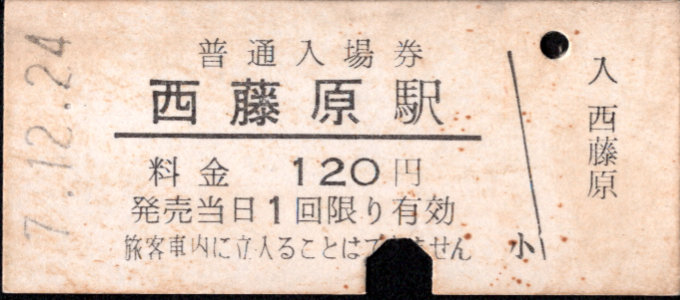 7.12.24
普通入場券
西藤原駅
料金 120円
発売当日1回限り有効
旅客車内に立入ることはできません
小
入 西藤原